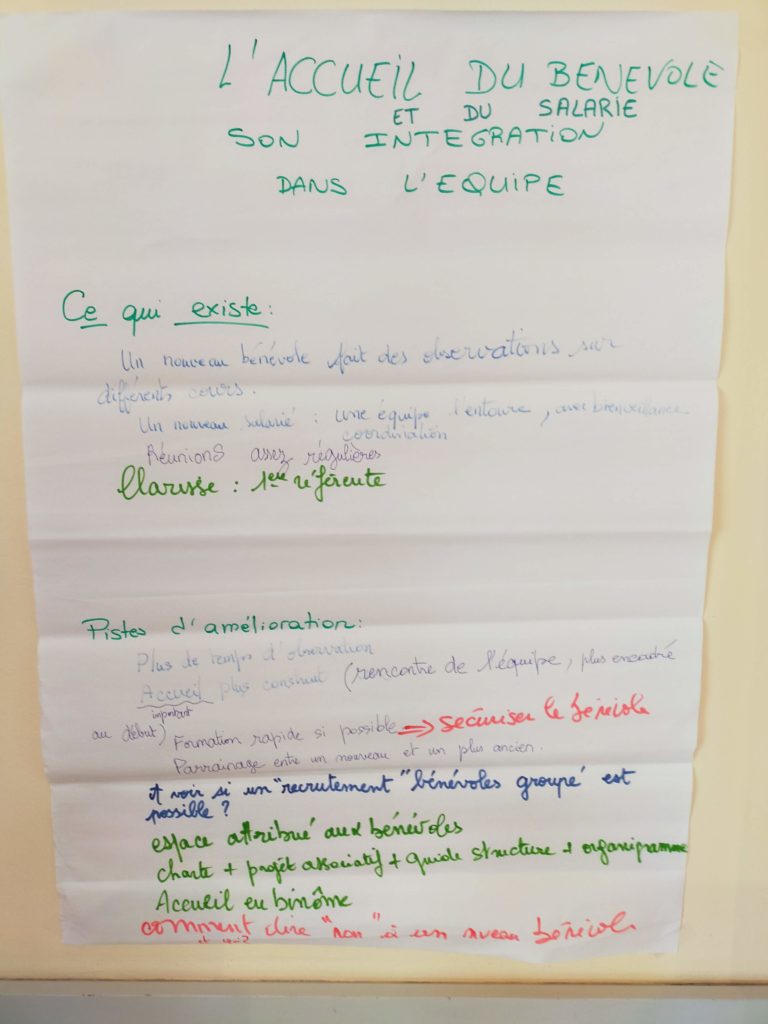 L'ACCUEIL DU BENEVOLE
ET DU SALARIE
SON INTEGRATION
DANS L'EQUIPE
Ce qui existe:
Un nouveau bénévole fait des observations sur
différents cours.
Un nouveau salarié : une équipe l'entoure, avec bienveillance
coordination
Réunions assez régulières
Clarisse : 1ère référente
Pistes d'amélioration:
Plus de temps d'observation
Accueil plus construit (rencontre de l'équipe, plus encadré
important
au début)
Formation rapide si possible => Sécuriser le bénévole
Parrainage entre un nouveau et un plus ancien.
A voir si un "recrutement" bénévoles groupé est
possible ?
espace attribué aux bénévoles
charte + projet associatif + guide structure + organigramme
Accueil en binôme
comment dire "non" à un nveau bénévole